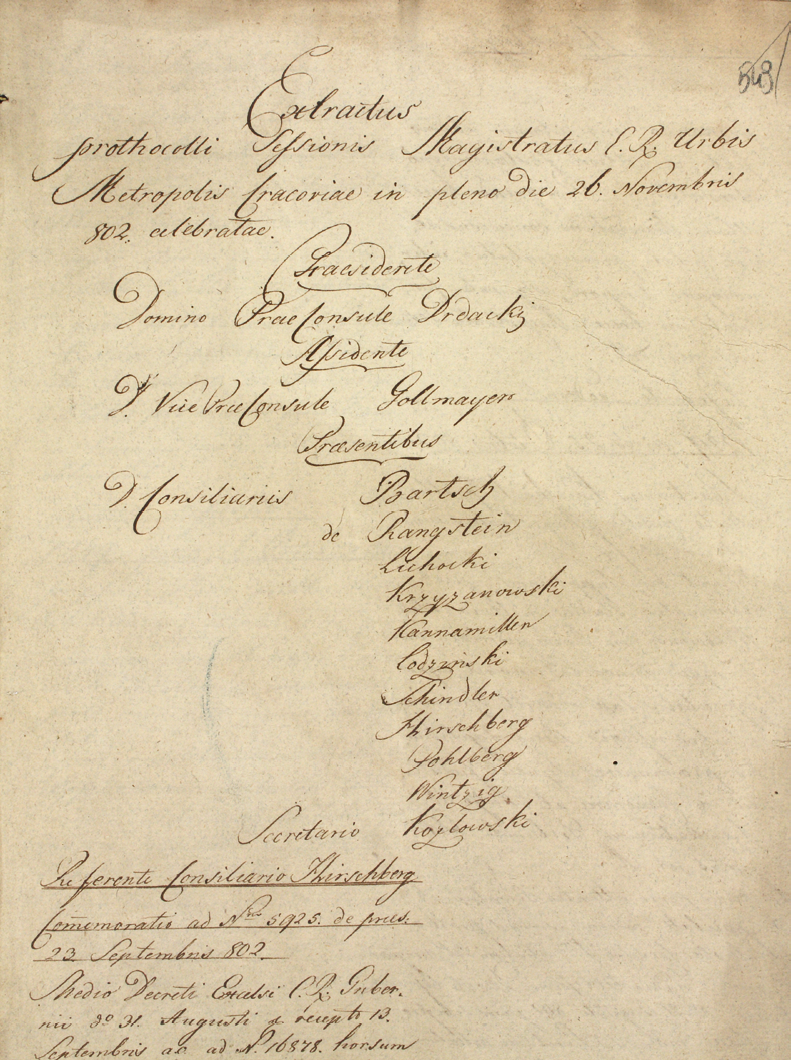 543
Extractus
prothocolli Sessionis Magistratus C. R. Urbis
Metropolis Cracoviae in pleno die 26. Novembris
802. celebratae.
Praesidente
Domino PraeConsule Drdacki
Assidente
D. Vice PraeConsule Gollmayer
Praesentibus
D. Consiliariis Bartsch
de Rangstein
Lichocki
Krzyzanowski
Hannamiller
Lodzinski
Schindler
Hirschberg
Pohlberg
Wintzig
Secretario Kozlowski
Referente Consiliario Hirschberg
Com̄emoratio ad Nrum 5925. de praes.
23 Septembris 802.
Medio Decreti Excelsi C. R. Guber-
nii do 31. Augusti & recepti 13.
Septembris ac ad N. 16878. horsum